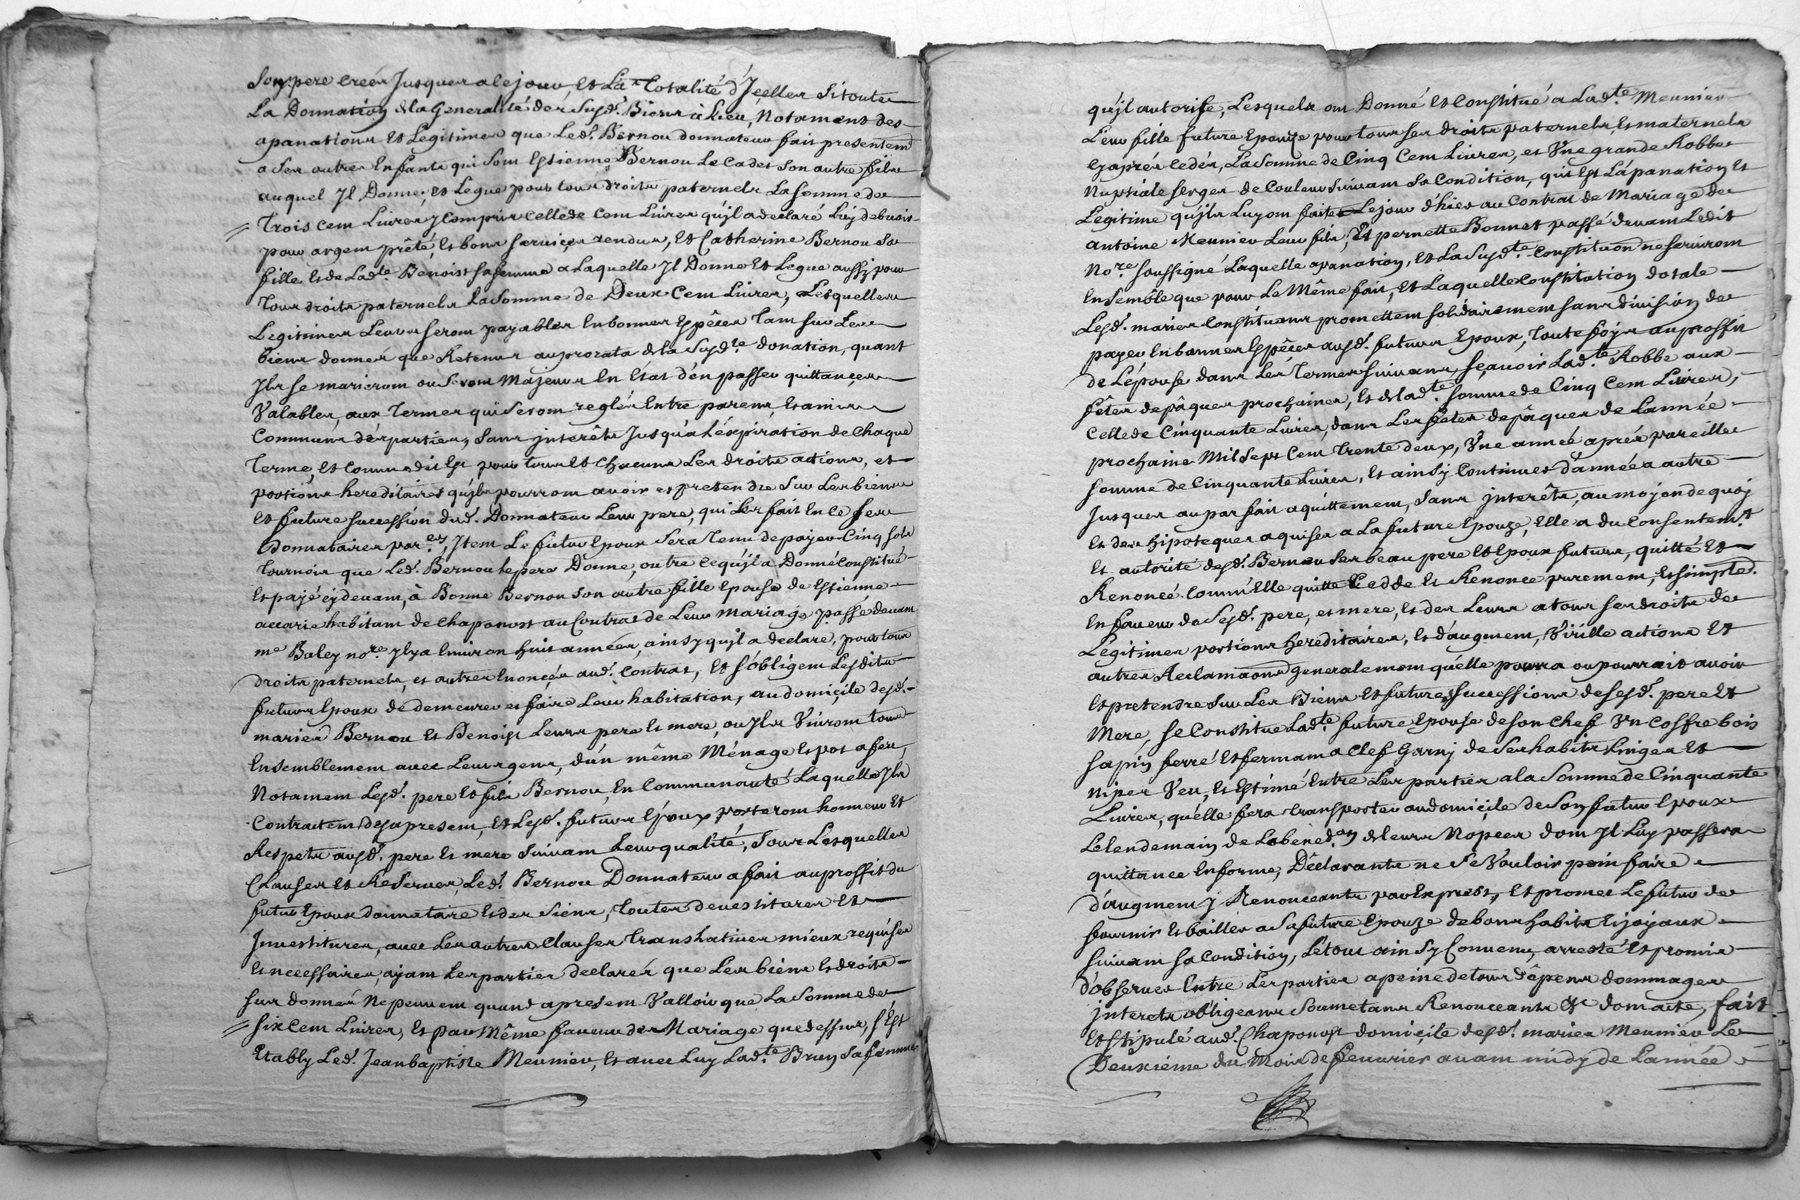 Son pere créés Jusques a ce jour, Et La Totalité d'Jcelles Si toute
La Donnation & la Generalité des Susd. Biens à Lieu, Notament des
apanations Et Legitimes que Led. Bernou donnateur fait presentem
a Ses autres Enfants qui Sont Estienne Bernou Le Cadet Son autre fils
auquel Jl Donne, et Legue pour tous droits paternels La Somme de
Trois Cent Livres y Compris Celle de Cent Livres qu'jl a declaré Luy debvoir
pour argent prêté, Et bons Services rendus, Et Catherine Bernou Sa
fille Et de Lad.te Benoist Sa femme a Laquelle Jl Donne Et Legue aussy pour
Tous droits paternels la Somme de Deux Cent Livres, Lesquelles
Legitimes Leurs Seront payables En bonnes Espêces Tant Sur Les
biens donnés que Retenus au prorata de la Susd.te donation, quant
Jls Se marieront ou Seront Majeurs En Etat d'en passer quittances
Valables, aux Termes qui Seront reglés Entre parens, Et amis
Communs des parties, Sans jnterêts Jusqu'a L'éxpiration de Chaque
Terme, Et Comme dit Est pour tous Et Chacuns Les droits actions, et
portions hereditaires qu'jls pourront avoir et pretendre Sur Les biens
Et future Succession dud. Donnateur Leur pere, qui Les fait En Ce Ses
Donnataires par.ers Jtem Le futur Epoux Sera Tenu de payer Cinq Sols
Tournois que Led. Bernou le pere Donne, outre Ce qu'jl a Donné Constitué
Et payé cydevant, à Bonne Bernou Son autre fille Epouse de Estienne
accarie habitant de Chaponost au Contrat de Leur Mariage passé devant
me Baley no.re Jl y a Environ huit années, ainsy qu'jl a declaré, pour tous
droits paternels, et autres Enoncés aud. Contrat, Et S'obligent Lesdits
futurs Epoux de demeurer et faire Leur habitation, au domicile desd.
mariés Bernou Et Benoist Leurs pere Et mere, ou Jls Vivront tous
Ensemblement avec Leurs gens, d'un même Ménage Et pot a feu,
Notament Lesd. pere Et fils Bernou, En Communauté Laquelle Jls
Contractent des apresent, Et Lesd. futurs Epoux porteront honneur Et
Respets ausd. pere Et mere Suivant Leur qualité, Sous Lesquelles
Clauses Et Reserves, Led. Bernou Donnateur a fait au proffit du
futur Epoux donnataire Et des Siens, toutes devestitures Et
Jnvestitures, avec Les autres Clauses Translatives mieux requises
Et necessaires, ayant Les parties declarés que Les biens Et droits
Sus donnés Ne peuvent quand apresent Valloir que La Somme de
Six Cent Livres, Et par Même faveur des Mariage que dessus, S'Est
Etably Led. Jean baptiste Meunier, Et avec Luy Lad.te Brun Sa femme
qu'jl autorise, Lesquels ont Donné Et Constitué a Lad.te Meunier
Leur fille future Epouze pour tous Ses droits paternels, Et maternels
Cy aprés Cedés, La Somme de Cinq Cent Livres, et Vne grande Robbe
Nuptiale Serges de Couleur Suivant Sa Condition, qui Est L'apanation Et
Legitime qu'jls Luy ont faite Le jour d'hier au Contrat de Mariage de
antoine Meunier Leur fils, Et pernette Bonnet passé devant Ledit
No.re Soussigné Laquelle apanation, Et La Susd.te Constitution ne Serviront
Ensemble que pour Le Même fait, Et Laquelle Constitution dotale
Lesd. mariés Constituans promettent Solidairement Sans division de
payer En bonnes Espêces ausd. futurs Epoux, Toute fois au proffit
de L'épouse dans Les Termes Suivans, Sçavoir Lad.te Robbe aux
fêtes de pâques prochaines, Et de lad.te Somme de Cinq Cent Livres,
Celle de Cinquante Livres, dans Les fêtes de pâques de L'année
prochaine Mil Sept Cent Trente deux, Vne année aprés pareille
Somme de Cinquante Livres, Et ainsy Continuer d'année a autre
Jusques au parfait aquittement, Sans jnterêts, au moyen de quoy
Et des hipoteques aquises a La future Epouze, Elle a du Consentem.t
Et autorité desd. Bernou Ses beau pere Et Epoux futurs, quitté Et
Renoncé Comm'Elle quitte Cedde Et Renonce purement, Et Simplem.
En faveur de Sesd. pere, et mere, Et des Leurs a tous Ses droits de
Legitimes portions hereditaires, Et d'augment, Virille actions Et
autres Reclamaons generalement qu'elle pourra ou pourrait avoir
Et pretendre Sur Les Biens Et futures Successions de Sesd. pere Et
Mere, Se Constitue Lad.te future Epouse de Son Chef Vn Coffre bois
Sapin ferré Et fermant a Clef Garny de Ses habits Linges Et
nipes Veu, Et Estimé Entre Les parties a la Somme de Cinquante
Livres, qu'elle fera transporter au domicile de Son futur Epoux
Le lendemain de La bened.on de leurs Nopces dont Jl Luy passera
quittance En forme, Déclarante ne Se Vouloir point faire
d'augment y Renonceante par Exprest, Et promet Le futur de
fournir Et bailler a Sa future Epouze de bons habits Et joyaux
Suivant Sa Condition, Le tout ainsy Convenu, arresté Et promis
d'observer Entre Les parties a peine de tous dépens dommages
jnterets obligeans Soumettans Renonceants &c dont acte, fait
Et Stipulé aud. Chaponost domicile desd. mariés Meunier Le
Deuxiéme du Mois de fevvrier avant midy de L'année